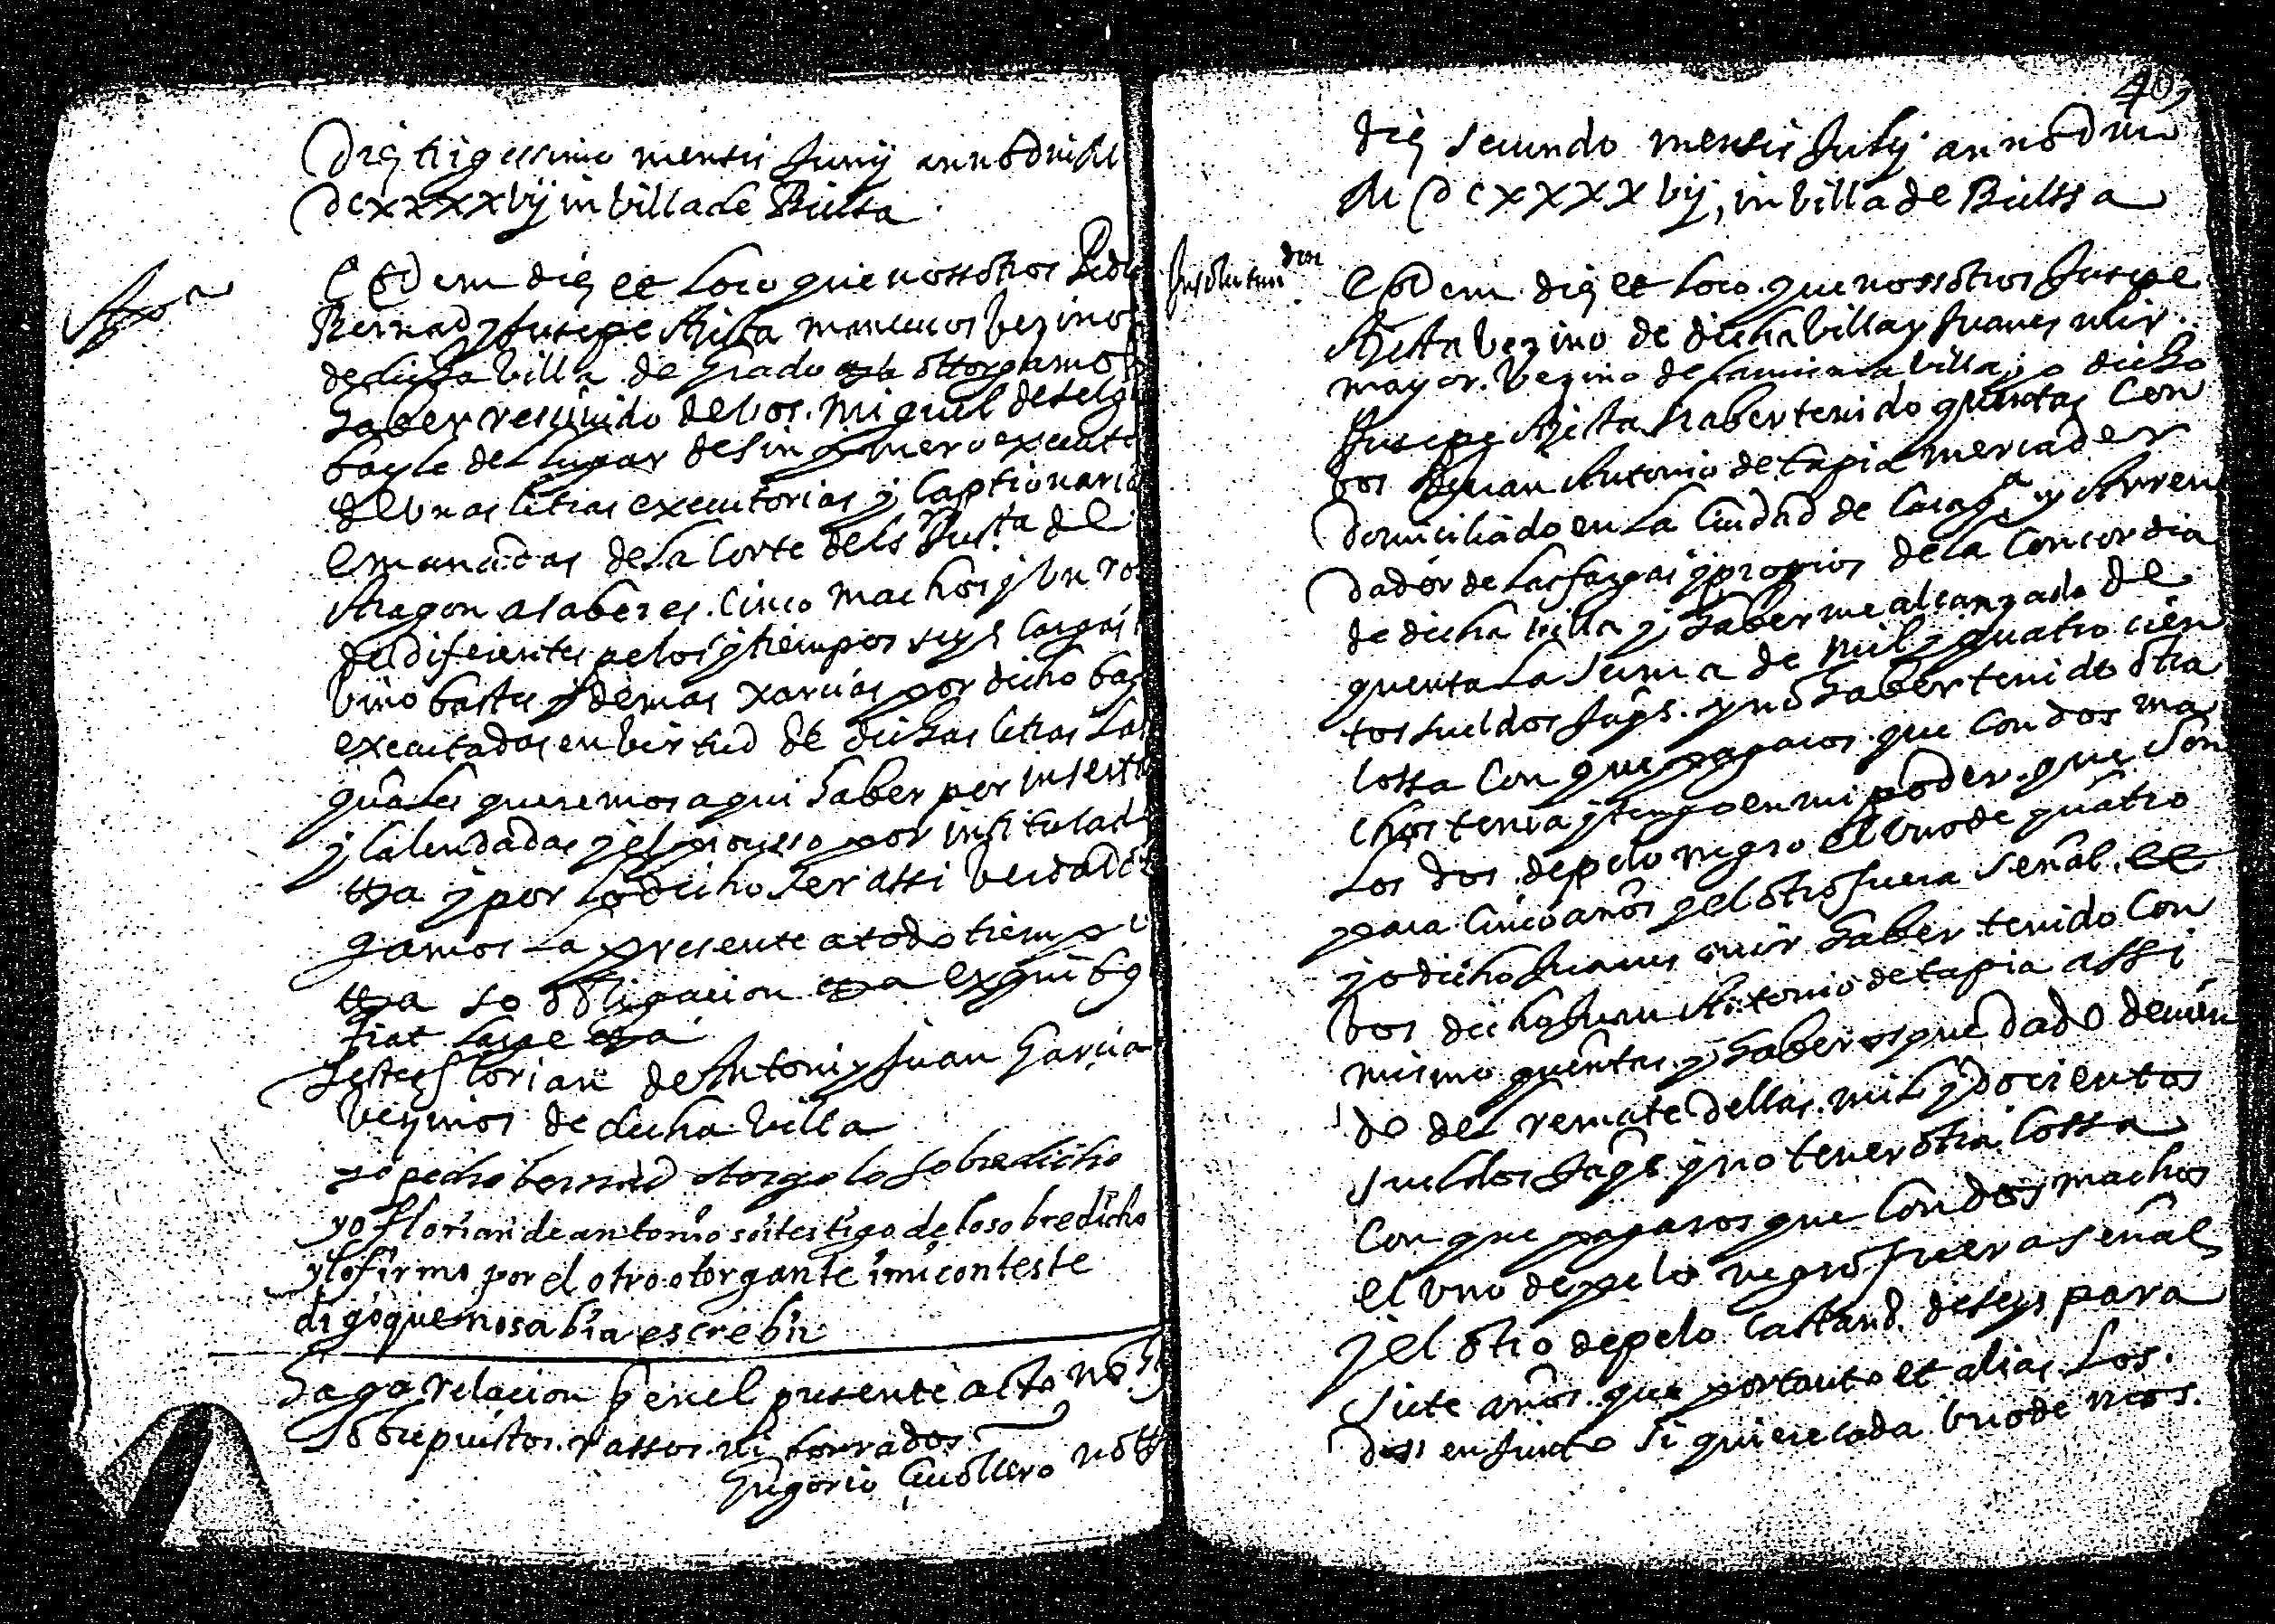 Die trigessimo mensis Junij anno Dni M
Dcxxxxvij in villa de Bielsa
Eodem die et loco que nossotros Pedro
Bernad y Jusepe Bielsa mancevos vezinos
de dicha villa de grado etta ottorgamos
haber rescivido de vos Miguel de
bayle del lugar de Sin primero executo
de unas letras executorias y captionaria
emanadas de la Corte del S Justa de
Aragon a saber es cinco machos y un ro
de diferentes pelos y tiempos seys cargas
vino bastes y demas xarcias por dicho bay
executados en virtud de dichas letras las
quales queremos aqui haber por inserta
y calendadas y el processo por intitulad
etta y por lo dicho ser assi verdad
gamos la presente a todo tiempo
etta so obligacion etta ex quibus
fiat large etta
Testes Florian de Antoni y Juan Garcia
vezinos de dicha villa
yo pedro bernad otorgo lo sobredicho
yo florian de antonio soi testigo de lo sobredicho
y lo firmo por el otro otorgante i mi conteste
digo que no sabia escrebir
Hago relacion q en el presente acto no ay
sobrepuestos rassos ni borrados
Gregorio not
40
die secundo mensis Julij anno Dni
M Dcxxxxvij, in villa de Bielssa
Eodem die et loco que nossotros Jusepe
vezino de dicha villa y Juanes Mir
mayor vezino de la misma villa yo dicho
Jusepe haber tenido quentas con
vos Juan Antonio de Tapia mercader
domiciliado en la Ciudad de Carag.a y Arren
dador de las fargas y propios de la Concordia
de dicha villa y haberme alcanzado de
quenta la suma de mil y quatro cien
tos sueldos Jaqs. y no haber tenido otra
cossa con que pagaros que con dos ma
chos tenia y tengo en mi poder que son
los dos de pelo negro el uno de quatro
para cinco años y el otro fuera señal et
yo dicho Juanes Mir haber tenido con
vos dicho Juan Antonio de Tapia assi
mismo quentas y haberos quedado devien
do del remate dellas mil y docientos
sueldos Jaqs y no tener otra cossa
con que pagaros que con dos machos
el uno de pelo negro fuera señal
y el otro de pelo castano de seys para
siete años que por tanto et alias los
dos en junto si quiere cada uno de nos